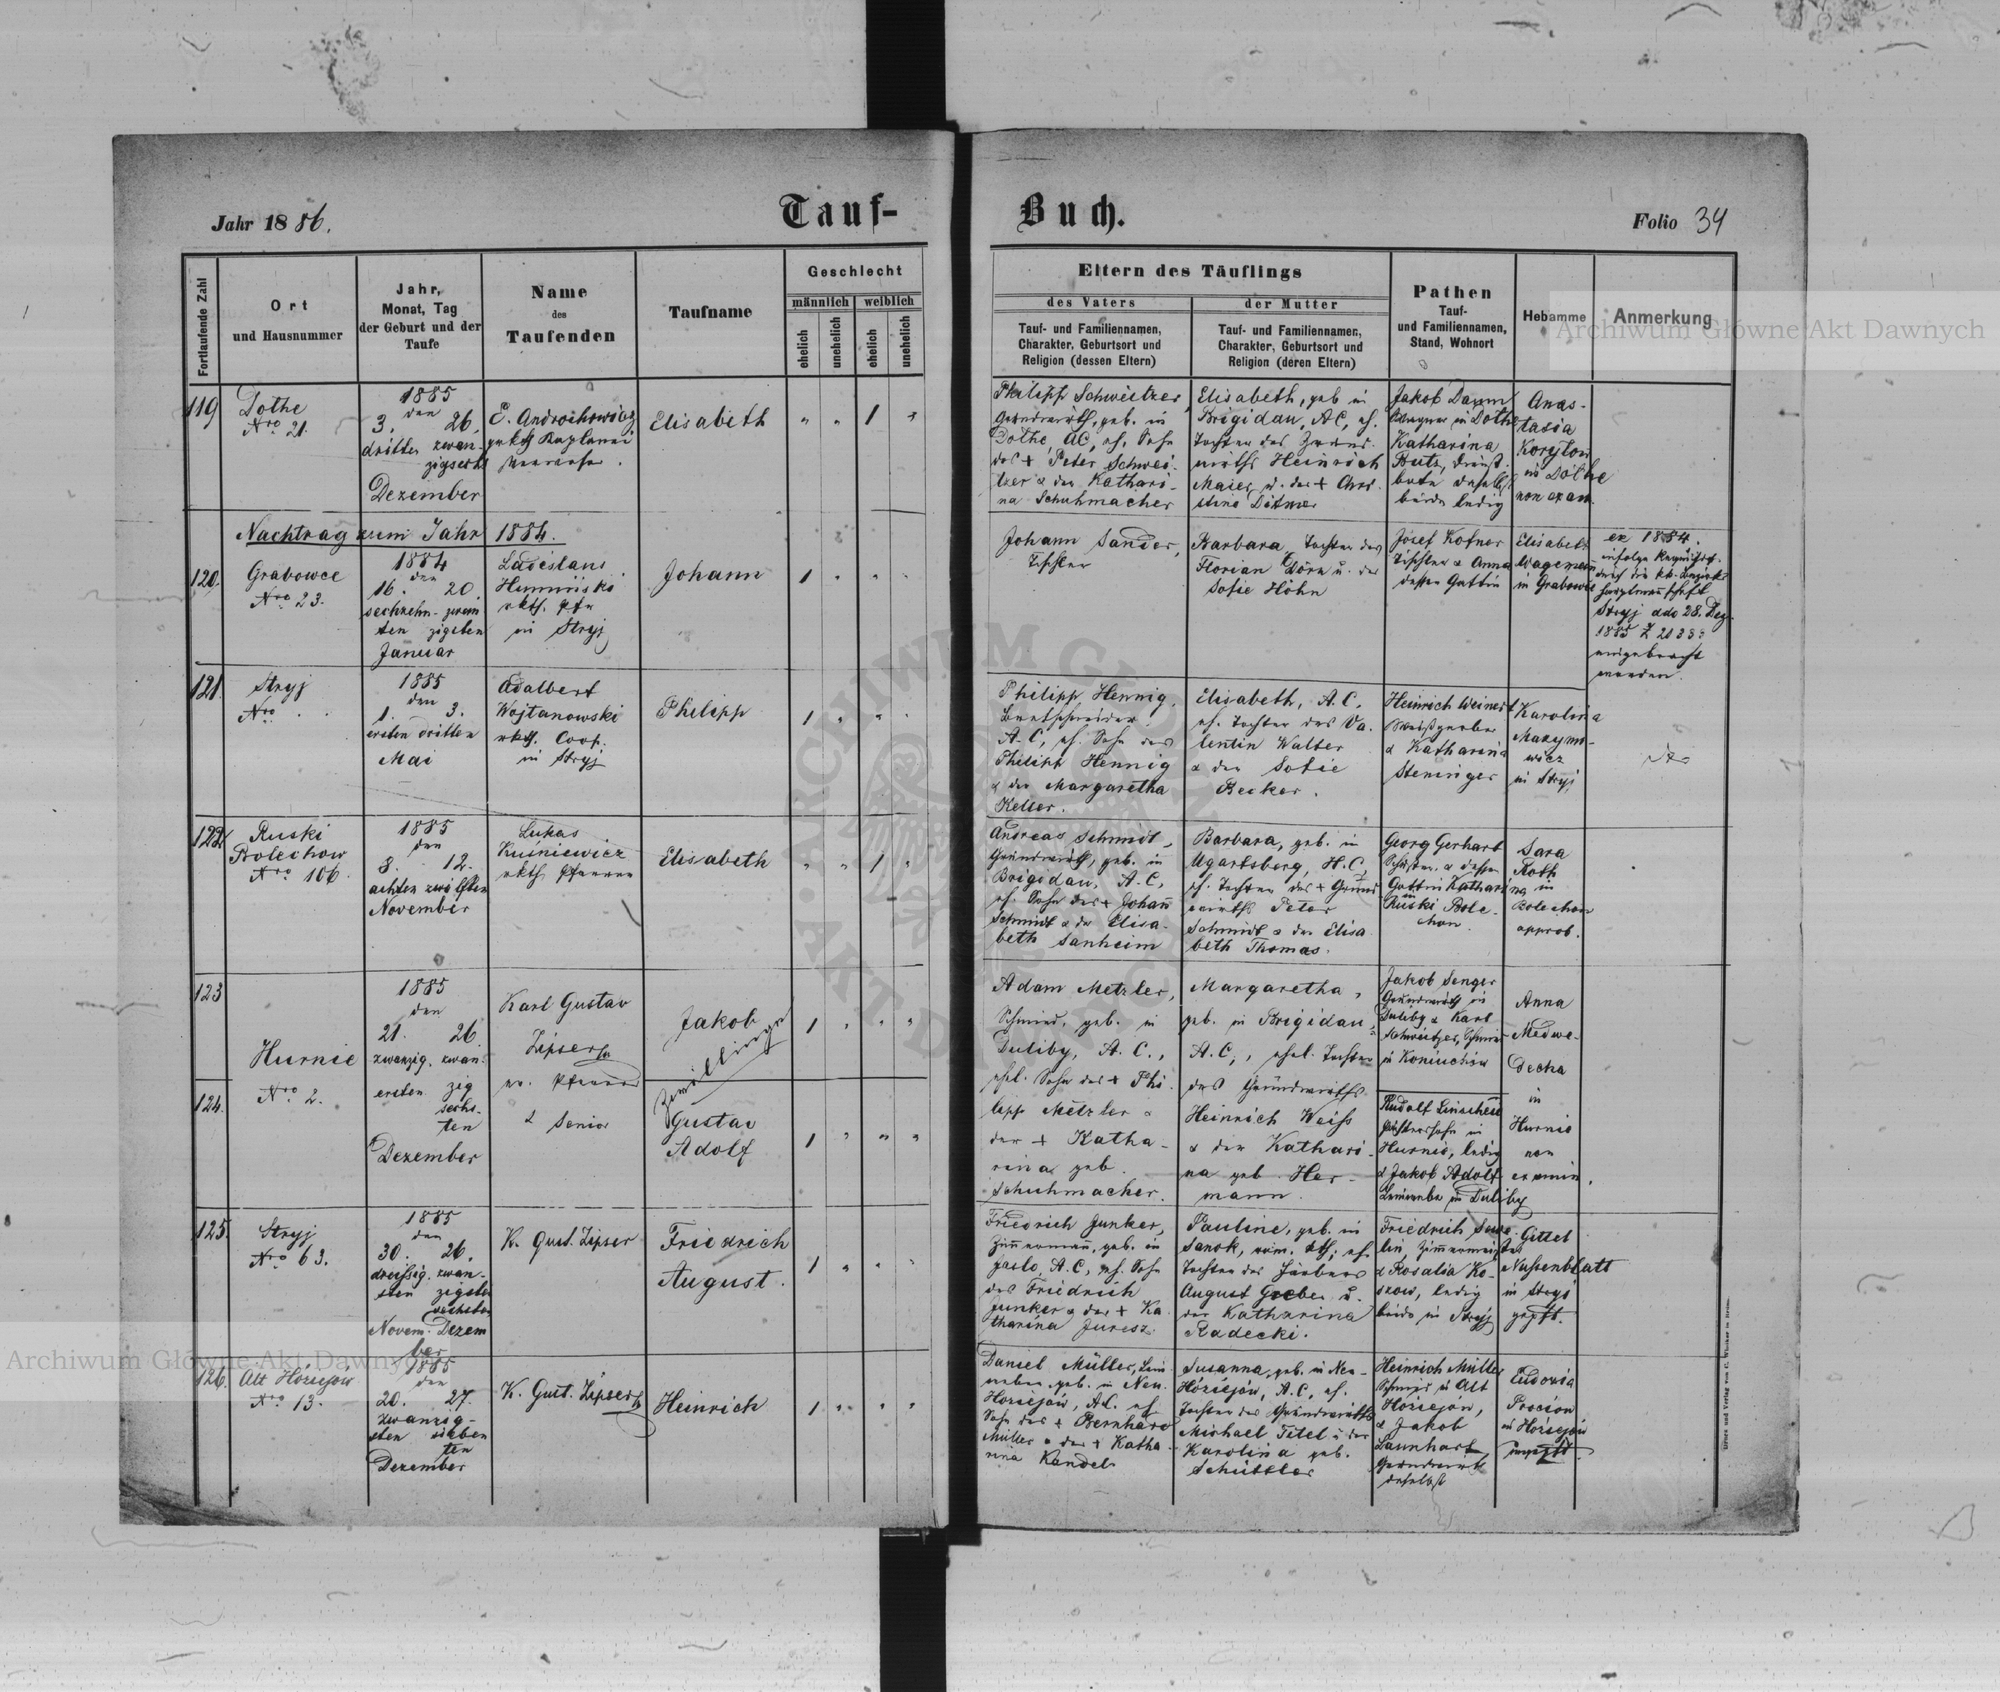 Jahr 1886.
Tauf-
Buch.
Folio 34
Fortlaufende Zahl
Ort
und Hausnummer
Jahr,
Monat, Tag
der Geburt und der
Taufe
Name
des
Taufenden
Taufname
Geschlecht
männlich weiblich
ehelich
unehelich
ehelich
unehelich
Eltern des Täuflings
des Vaters
Tauf- und Familiennamen,
Charakter, Geburtsort und
Religion (dessen Eltern)
der Mutter
Tauf- und Familiennamen,
Charakter, Geburtsort und
Religion (deren Eltern)
Pathen
Tauf-
und Familiennamen,
Stand, Wohnort
Hebamme
Anmerkung
119
Dothe
Nro 21.
1885
den
3. 26.
dritten zwan-
zigsechs
Dezember
E. Androchowicz
Elisabeth
1
Philipp Schweitzer,
Grundwirth, geb. in
Dothe, AC, eh. Sohn
des + Peter Schwei-
tzer & der Kathari-
na Schuhmacher
Elisabeth, geb in
Brigidau, AC, eh.
Tochter des Grund-
wirths Heinrich
Maier u. der + Chri-
stina Ditmer
Jakob Damm
Wagner in Dothe
Katharina
Butz, Dienst-
bote daselbst
beide ledig
Anas-
tasia
Korytow
in Dothe
non exam.
Nachtrag zum Jahr 1884.
120.
Grabowce
Nro 23.
1884
den
16. 20.
sechzehn- zwan
ten zigsten
Januar
Ladislaus
rkth. Pfr
in Stryj
Johann
1
Johann Sander,
Tischler
Barbara, Tochter des
Florian Dörn u. der
Sofie Höhn
Josef Kofner
Tischler & Anna
dessen Gattin
Elisabeth
Wagemann
in Grabowce
ex 1884.
durch die kk. Bezirks
hauptmannschaft
Stryj ddo 28. Dez.
1885 Z
eingebracht
worden.
121
Stryj
Nro . .
1885
den
1. 3.
ersten dritten
Mai
Adalbert
Wojtanowski
rkth. Coop.
in Stryj
Philipp
1
Philipp Hennig,
Brettschneider
A. C, eh. Sohn des
Philipp Hennig
& der Margaretha
Keller.
Elisabeth, A. C.
eh. Tochter des Va-
lentin Walter
& der Sofie
Becker.
Heinrich Weinert
Weißgerber
& Katharina
Steninger
Karolina
Maxymo-
wicz
in Stryj
dto
122
Ruski
Bolechow
Nro 106
1885
den
8. 12.
achten zwölften
November
Lukas
Kuśniewicz
rkth. Pfarrer
Elisabeth
1
Andreas Schmidt,
Grundwirth, geb. in
Brigidau, A. C,
eh. Sohn des + Johann
Schmidt & der Elisa-
beth Sanheim
Barbara, geb. in
Ugartsberg, H. C,
eh. Tochter des + Grund
wirths Peter
Schmidt & der Elisa
beth Thomas.
Georg Gerhart
Schuster & dessen
Gattin Katharina
in
Ruski Bole-
chow
Sara
Roth
in
Bolechow
approb.
123
124.
Hurnie
Nro 2.
1885
den
21. 26.
zwanzig- zwan-
ersten zig
sechs-
ten
Dezember
Karl Gustav
Zipser
ev. Pfarrer
& Senior
Jakob
Zwillinge
Gustav
Adolf
1
1
Adam Metzler,
Schmied, geb. in
Duliby, A. C.,
ehel. Sohn des + Phi-
lipp Metzler &
der + Katha-
rina geb.
Schuhmacher.
Margaretha,
geb. in Brigidau,
A. C., ehel. Tochter
des Grundwirths
Heinrich Weiss
& der Kathari-
na geb. Her-
mann.
Jakob Senger
Grundwirth in
Duliby & Karl
Schweitzer, Schmied
in Koniuchów
Rudolf
in
Hurnie, ledig
& Jakob Adolf
Leinweber in Duliby
Anna
Medwe-
decka
in
Hurnie
non
examin.
125.
Stryj
Nro 63.
1885
den
30. 26.
dreissig- zwan-
sten zigsten
sechsten
Novem- Dezem
ber
K. Gust. Zipser
Friedrich
August.
1
Friedrich Junker,
Zimmermann, geb. in
Jaslo, A. C, eh. Sohn
des Friedrich
Junker & der + Ka
tharina Juresz.
Pauline, geb. in
Sanok, röm. kth., eh.
Tochter des Färbers
August Greber u.
der Katharina
Radecki.
Friedrich
& Rosalia Ko-
szow, ledig
beide in Stryj
Gittel
Nussenblatt
in Stryj
gepft.
126.
Alt Hóziejów
Nro 13.
1885
den
20. 27.
zwanzig-
sten sieben
ten
Dezember
K. Gust. Zipser
Heinrich
1
Daniel Müller, Lein
weber, geb. in Neu
Hoziejów, AC. eh.
Sohn des + Bernhard
Müller & der + Katha
rina Kandel
Susanna, geb. in Neu-
Hóziejów, A. C, eh.
Tochter des Grundwirths
Michael Titel u. der
Karolina geb.
Schüttler
Heinrich Müller
Schmied in Alt
Hóziejów,
& Jakob
Launhart
Grundwirth
daselbst
Eudoxia
in Hóziejów
ungepft.
Archiwum Główne Akt Dawnych
Archiwum Główne Akt Dawnych
ARCHIWUM GŁÓWNE AKT DAWNYCH